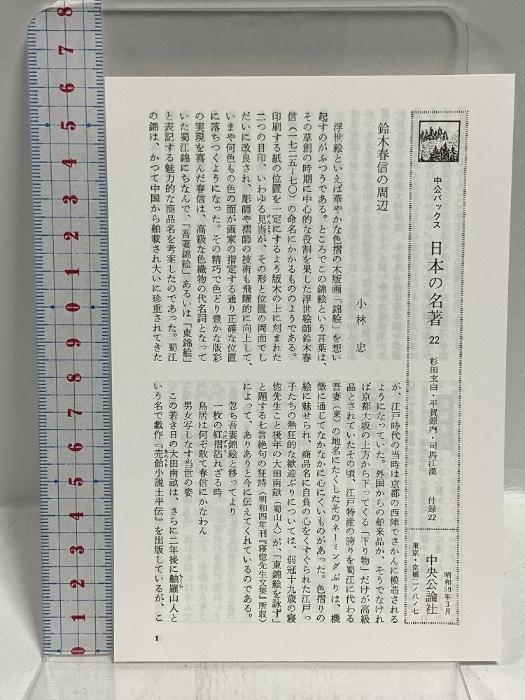 中公バックス 日本の名著 22 杉田玄白・平賀源内・司馬江漢 付録22
昭和59年3月
中央公論社
東京・京橋二ノ八ノ七
鈴木春信の周辺
小林 忠
浮世絵といえば華やかな色摺の木版画「錦絵」を想い
起すのがふつうである。ところでこの錦絵という言葉は、
その草創の時期に中心的な役割を果した浮世絵師鈴木春
信(一七二五―七〇)の命名にかかるもののようである。
印刷する紙の位置を一定にするよう版木の上に刻まれた
二つの目印、いわゆる見当が、その形と位置の両面でし
だいに改良され、彫師や摺師の技術も飛躍的に向上して、
いまや何色もの色の面が画家の指定する通り正確な位置
に落ちつくようになった。その精巧で色どり豊かな版彩
の実現を喜んだ春信は、高級な色織物の代名詞となって
いた蜀江錦にちなんで、「吾妻錦絵」あるいは「東錦絵」
と表記する魅力的な商品名を考案したのであった。蜀江
の錦は、かつて中国から舶載され大いに珍重されてきた
が、江戸時代の当時は京都の西陣でさかんに模造される
ようになっていた。外国からの舶来品か、そうでなけれ
ば京都大坂の上方から下ってくる「下り物」だけが高級
品とされていたその頃、江戸特産の誇りを蜀江に代わる
吾妻(東)の地名にたくしたそのネーミングぶりは、機
微に通じてなかなかに心にくいものがあった。色摺りの
絵に魅せられ、商品名に自負の心をくすぐられた江戸っ
子たちの熱狂的な歓迎ぶりについては、弱冠十九歳の寝
惚先生こと後年の大田南畝(蜀山人)が、「東錦絵を詠ず」
と題する七言絶句の狂詩(明和四年刊『寝惚先生文集』所収)
によって、ありありと今に伝えてくれているのである。
忽ち吾妻錦絵と移ってより
一枚の紅摺沽れざる時
鳥居は何ぞ敢て春信にかなわん
男女写しなす当世の姿
この若き日の大田南畝は、さらに二年後に舳羅山人と
いう名で戯作『売飴土平伝』を出版しているが、こ
1
8 7 6 5 4 3 2 1 0 9 8 7 6 5 4 3 2 1 0